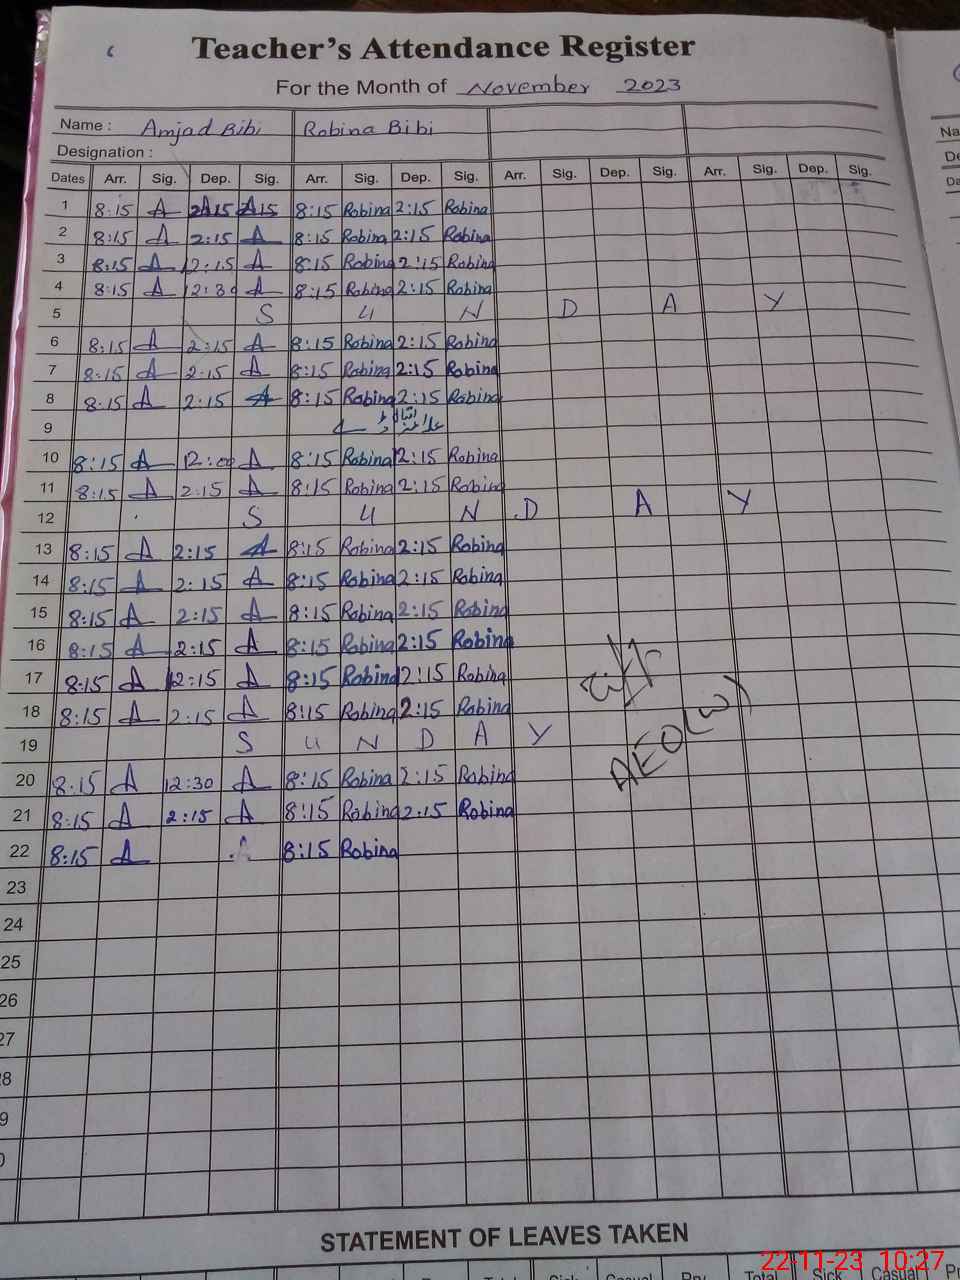 Teacher's Attendance Register
For the Month of November 2023
Name : Amjad Bibi Robina Bibi
Designation :
Dates Arr. Sig. Dep. Sig. Arr. Sig. Dep. Sig. Arr. Sig. Dep. Sig. Arr. Sig. Dep. Sig.
1 8:15 A 2:15 A 8:15 Robina 2:15 Robina
2 8:15 A 2:15 A 8:15 Robina 2:15 Robina
3 8:15 A 12:15 A 8:15 Robina 2:15 Robina
4 8:15 A 12:30 A 8:15 Robina 2:15 Robina
5 S U N D A Y
6 8:15 A 2:15 A 8:15 Robina 2:15 Robina
7 8:15 A 2:15 A 8:15 Robina 2:15 Robina
8 8:15 A 2:15 A 8:15 Robina 2:15 Robina
9
10 8:15 A 12:00 A 8:15 Robina 12:15 Robina
11 8:15 A 2:15 A 8:15 Robina 2:15 Robina
12 S U N D A Y
13 8:15 A 2:15 A 8:15 Robina 2:15 Robina
14 8:15 A 2:15 A 8:15 Robina 2:15 Robina
15 8:15 A 2:15 A 8:15 Robina 2:15 Robina
16 8:15 A 2:15 A 8:15 Robina 2:15 Robina
17 8:15 A 12:15 A 8:15 Robina 2:15 Robina
18 8:15 A 2:15 A 8:15 Robina 2:15 Robina
19 S U N D A Y
AEO(W)
20 8:15 A 12:30 A 8:15 Robina 2:15 Robina
21 8:15 A 2:15 A 8:15 Robina 2:15 Robina
22 8:15 A A 8:15 Robina
23
24
25
26
27
28
29
STATEMENT OF LEAVES TAKEN
22-11-23 10:27
Total Sick Casual